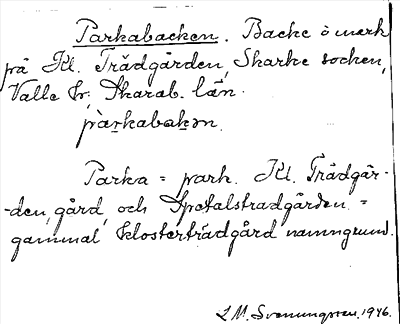 Parkabacken. Backe ö märk
på Kl. Trädgården, Skarke socken,
Valle hr, Skarab. län.
parkabakən.
Parka = park. Kl. Trädgår-
-den, gård, och Spetalsträdgården =
gammal klosterträdgård namngrund.
L. M. Svenungsson. 1946.